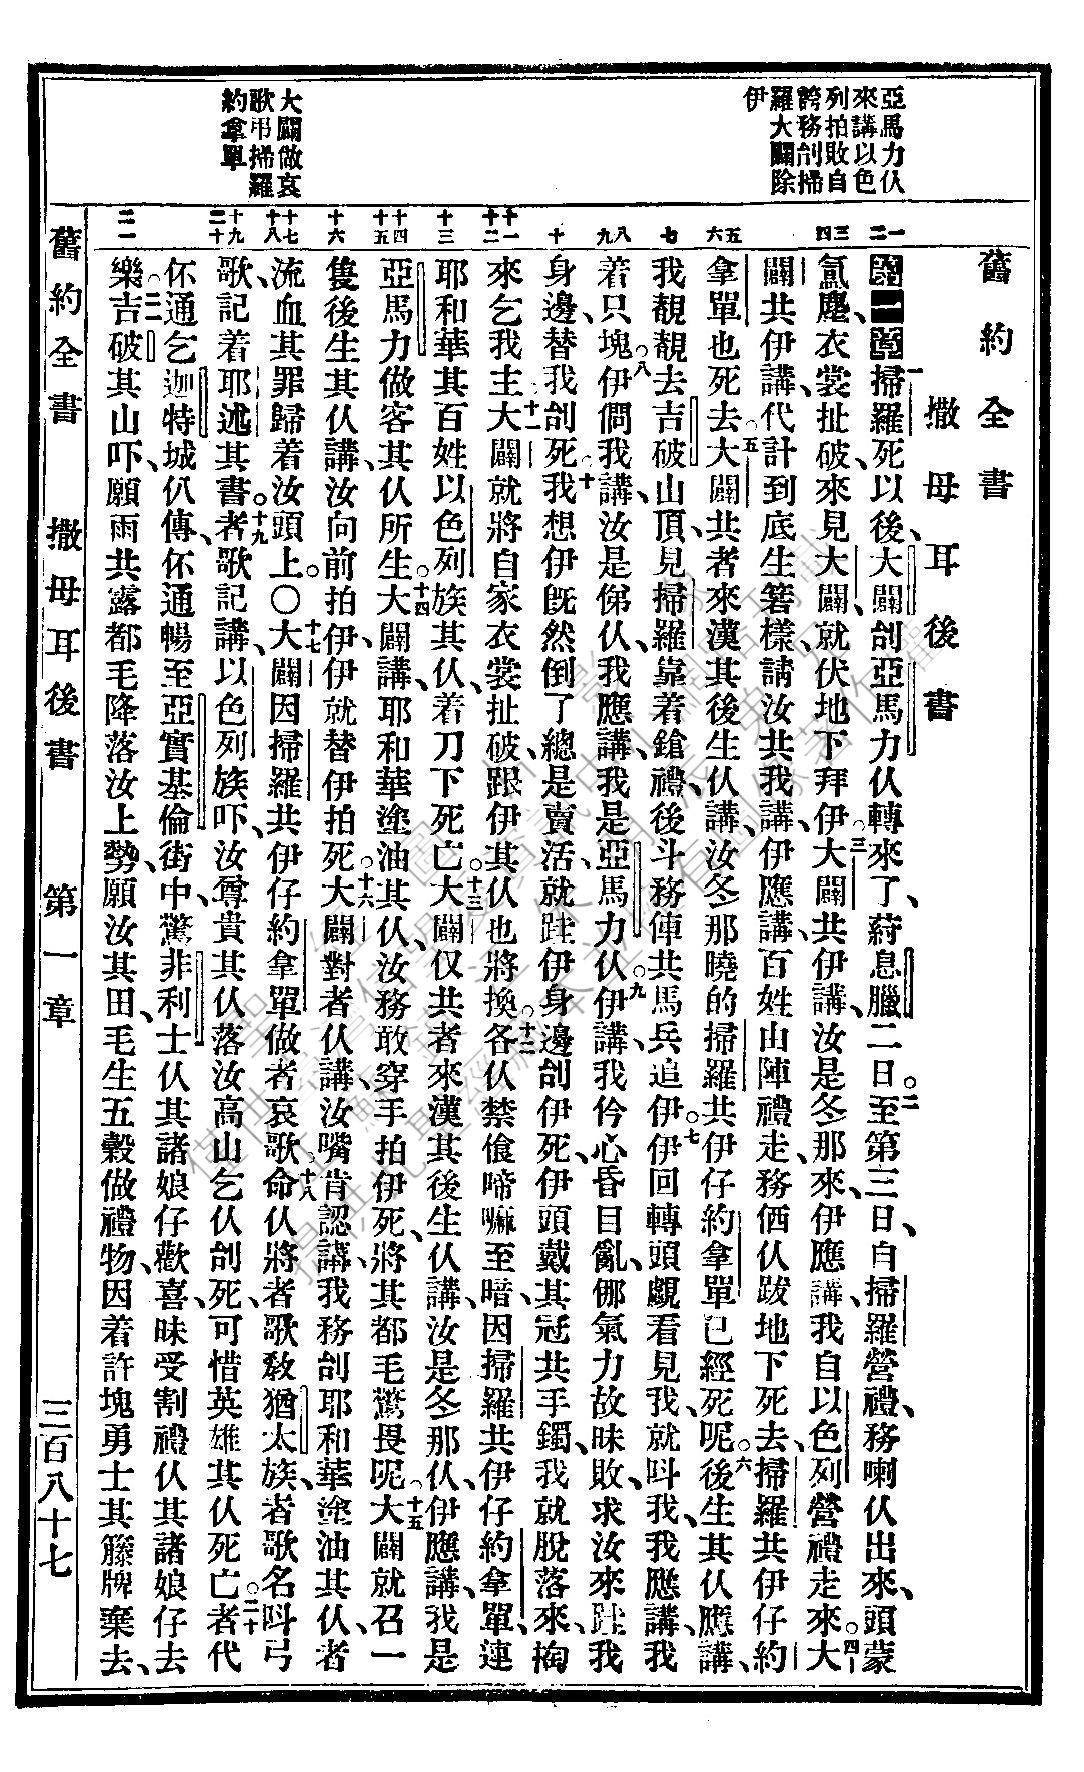 亞馬力仈
來講以色
列拍敗自
誇務刣掃
羅大闢除
伊
大闢做哀
歌弔掃羅
約拿單
舊約全書
撒母耳後書
第一章掃羅死以後、大闢刣亞馬力仈轉來了、蒔息臘二日。二至第三日、自掃羅營禮、務喇仈出來、頭蒙
氳塵、衣裳扯破、來見大闢、就伏地下拜伊。三大闢共伊講、汝是冬那來、伊應講、我自以色列營禮走來。四大
闢共伊講、代計到底生簭樣、請汝共我講、伊應講、百姓由陣禮走、務価仈跋地下死去、掃羅共伊仔約
拿單也死去。五大闢共者來漢其後生仈講、汝冬那曉的掃羅共伊仔約拿單已經死呢。六後生其仈應講、
我覩覩去吉破山頂、見掃羅靠着鎗禮、後斗務俥共馬兵追伊。七伊回轉頭覷看見我、就呌我、我應講、我
着只塊。八伊僩我講、汝是俤仈、我應講、我是亞馬力仈。九伊講、我仱心昏目亂、㑚氣力故昧敗、求汝來跬我
身邊、替我刣死。十我想伊旣然倒了、總是賣活、就跬伊身邊刣伊死、伊頭戴其冠共手鐲、我就脫落來、掏
來乞我主。十一大闢就將自家衣裳扯破、跟伊其仈也將換。十二各仈禁飡啼嘛至暗、因掃羅共伊仔約拿單、連
耶和華其百姓以色列族其仈、着刀下死亡。十三大闢仅共者來漢其後生仈講、汝是冬那仈、伊應講、我是
亞馬力做客其仈所生。十四大闢講、耶和華塗油其仈、汝務敢穿手拍伊死、將其都毛驚畏呢。十五大闢就召一
隻後生其仈講、汝向前拍伊、伊就替伊拍死。十六大闢對者仈講、汝嘴肯認講、我務刣耶和華塗油其仈、者
流血其罪歸着汝頭上。〇十七大闢因掃羅共伊仔約拿單做者哀歌。十八命仈將者歌敎猶太族、者歌名呌弓
歌、記着耶述其書。十九者歌記講、以色列族吓、汝尊貴其仈落汝高山乞仈刣死、可惜英雄其仈死亡。二十者代
伓通乞迦特城仈傳、伓通暢至亞實基倫街中、驚非利士仈其諸娘仔歡喜、昧受割禮仈其諸娘仔去
樂。二一吉破其山吓、願雨共露都毛降落汝上勢、願汝其田、毛生五穀做禮物、因着許塊勇士其籐牌棄去、
舊約全書 撒母耳後書 第一章 三百八十七